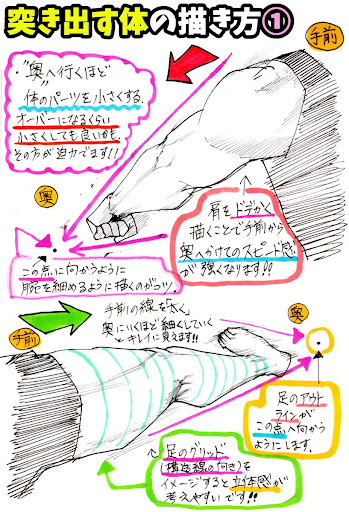 突き出す体の描き方①
手前
"奥"へ行くほど
体のパーツを小さくする。
オーバーになるくらい
小さくしても良いかも。
その方が迫力でます!!
奥
肩をドデカく
描くことで手前から
奥へかけてのスピード感
が強くなります!!
この点に向かうように
腕を細めるように描くのがコツ。
手前の線を「太く」
奥にいくほど細くしていく
とキレイに見えます!!
奥
手前
足のアウト
ラインが
この点へ向かう
ようにします。
足のグリッド
(横定線の向き)を
イメージすると立体感が
考えやすいです!!